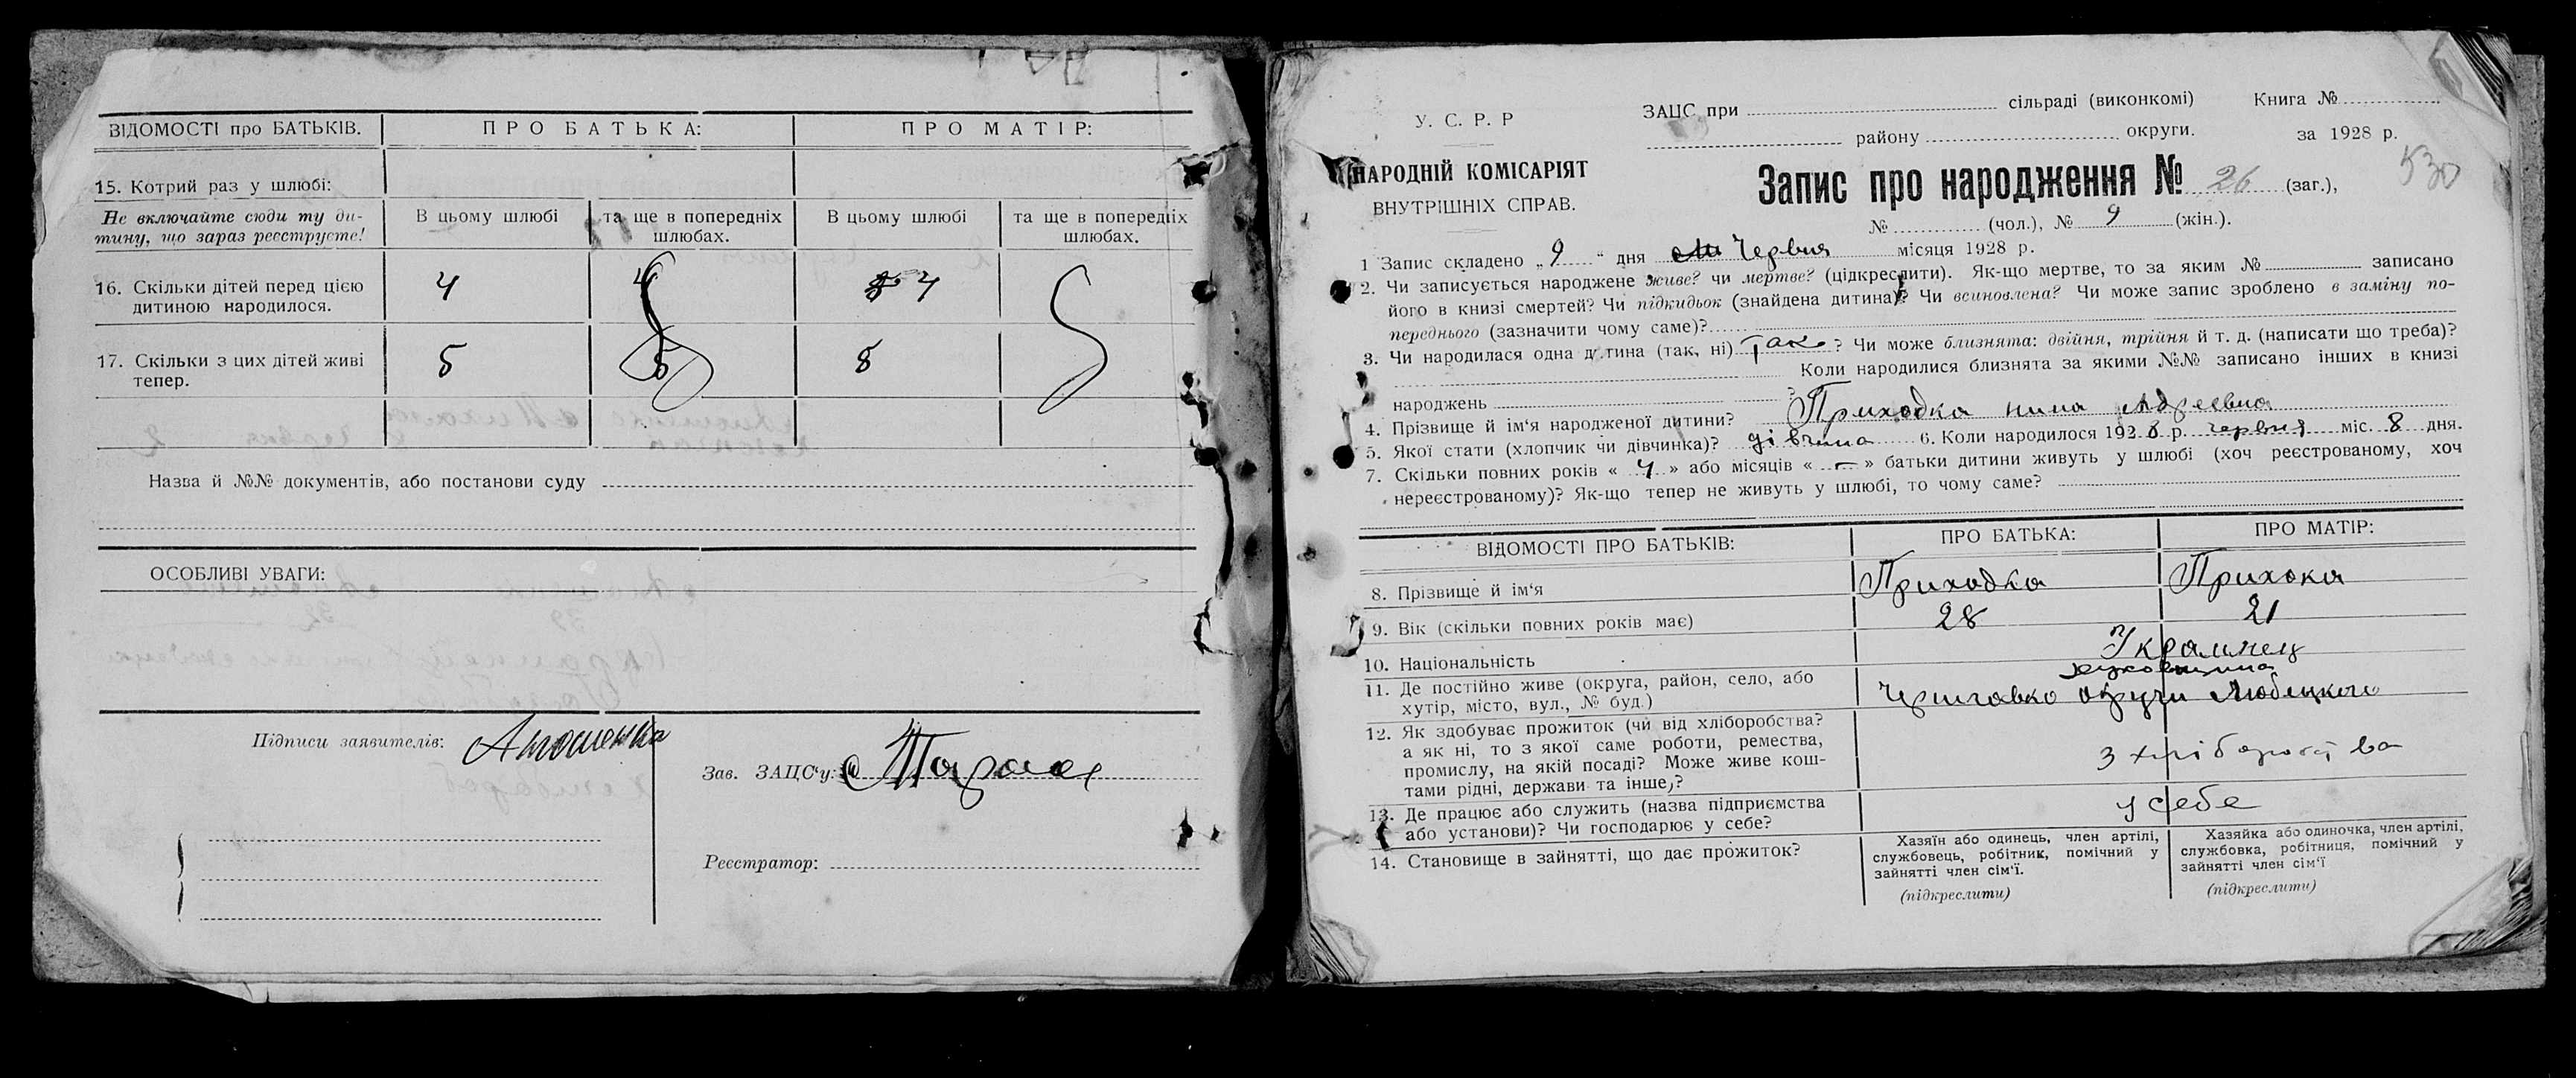 ВІДОМОСТІ про БАТЬКІВ. ПРО БАТЬКА: ПРО МАТІР:
15. Котрий раз у шлюбі:
Не включайте сюди ту ди-
тину, що зараз реєструєте!
В цьому шлюбі
та ще в попередніх
шлюбах.
В цьому шлюбі
та ще в попередніх
шлюбах.
16. Скільки дітей перед цією
дитиною народилося.
4 4
17. Скільки з цих дітей живі
тепер.
Назва й №№ документів, або постанови суду
ОСОБЛИВІ УВАГИ:
Підписи заявителів:
Зав. ЗАЦС'у:
Реєстратор:
У. С. Р. Р
НАРОДНІЙ КОМІСАРІЯТ
ВНУТРІШНІХ СПРАВ.
ЗАЦС при сільраді (виконкомі) Книга №
району округи. за 1928 р.
Запис про народження № 26 (заг.), 530
№ (чол.), № 9 (жін.).
1 Запис складено „ 9 “ дня Червня місяця 1928 р.
2. Чи записується народжене живе? чи мертве? (підкреслити). Як-що мертве, то за яким № записано
його в книзі смертей? Чи підкидьок (знайдена дитина)? Чи всиновлена? Чи може запис зроблено в заміну по-
переднього (зазначити чому саме)?
3. Чи народилася одна дитина (так, ні) Так ? Чи може близнята: двійня, трійня й т. д. (написати що треба)?
Коли народилися близнята за якими №№ записано інших в книзі
народжень ?
4. Прізвище й ім'я народженої дитини? Приходка нина Адреевна
5. Якої стати (хлопчик чи дівчинка)? дівчина 6. Коли народилося 1928 р. червня міс. 8 дня.
7. Скільки повних років « 4 » або місяців « – » батьки дитини живуть у шлюбі (хоч реєстрованому, хоч
нереєстрованому)? Як-що тепер не живуть у шлюбі, то чому саме?
ВІДОМОСТІ ПРО БАТЬКІВ: ПРО БАТЬКА: ПРО МАТІР:
8. Прізвище й ім'я Приходка Прихока
9. Вік (скільки повних років має) 28 21
10. Національність Украинец
11. Де постійно живе (округа, район, село, або
хутір, місто, вул., № буд.)
округи Любецкого
12. Як здобуває прожиток (чи від хліборобства?
а як ні, то з якої саме роботи, ремества,
промислу, на якій посаді? Може живе кош-
тами рідні, держави та інше,?
13. Де працює або служить (назва підприємства
або установи)? Чи господарює у себе?
у себе
14. Становище в зайнятті, що дає прожиток?
Хазяїн або одинець, член артілі,
службовець, робітник, помічний у
зайнятті член сім'ї.
(підкреслити)
Хазяйка або одиночка, член артілі,
службовка, робітниця, помічний у
зайнятті член сім'ї
(підкреслити)